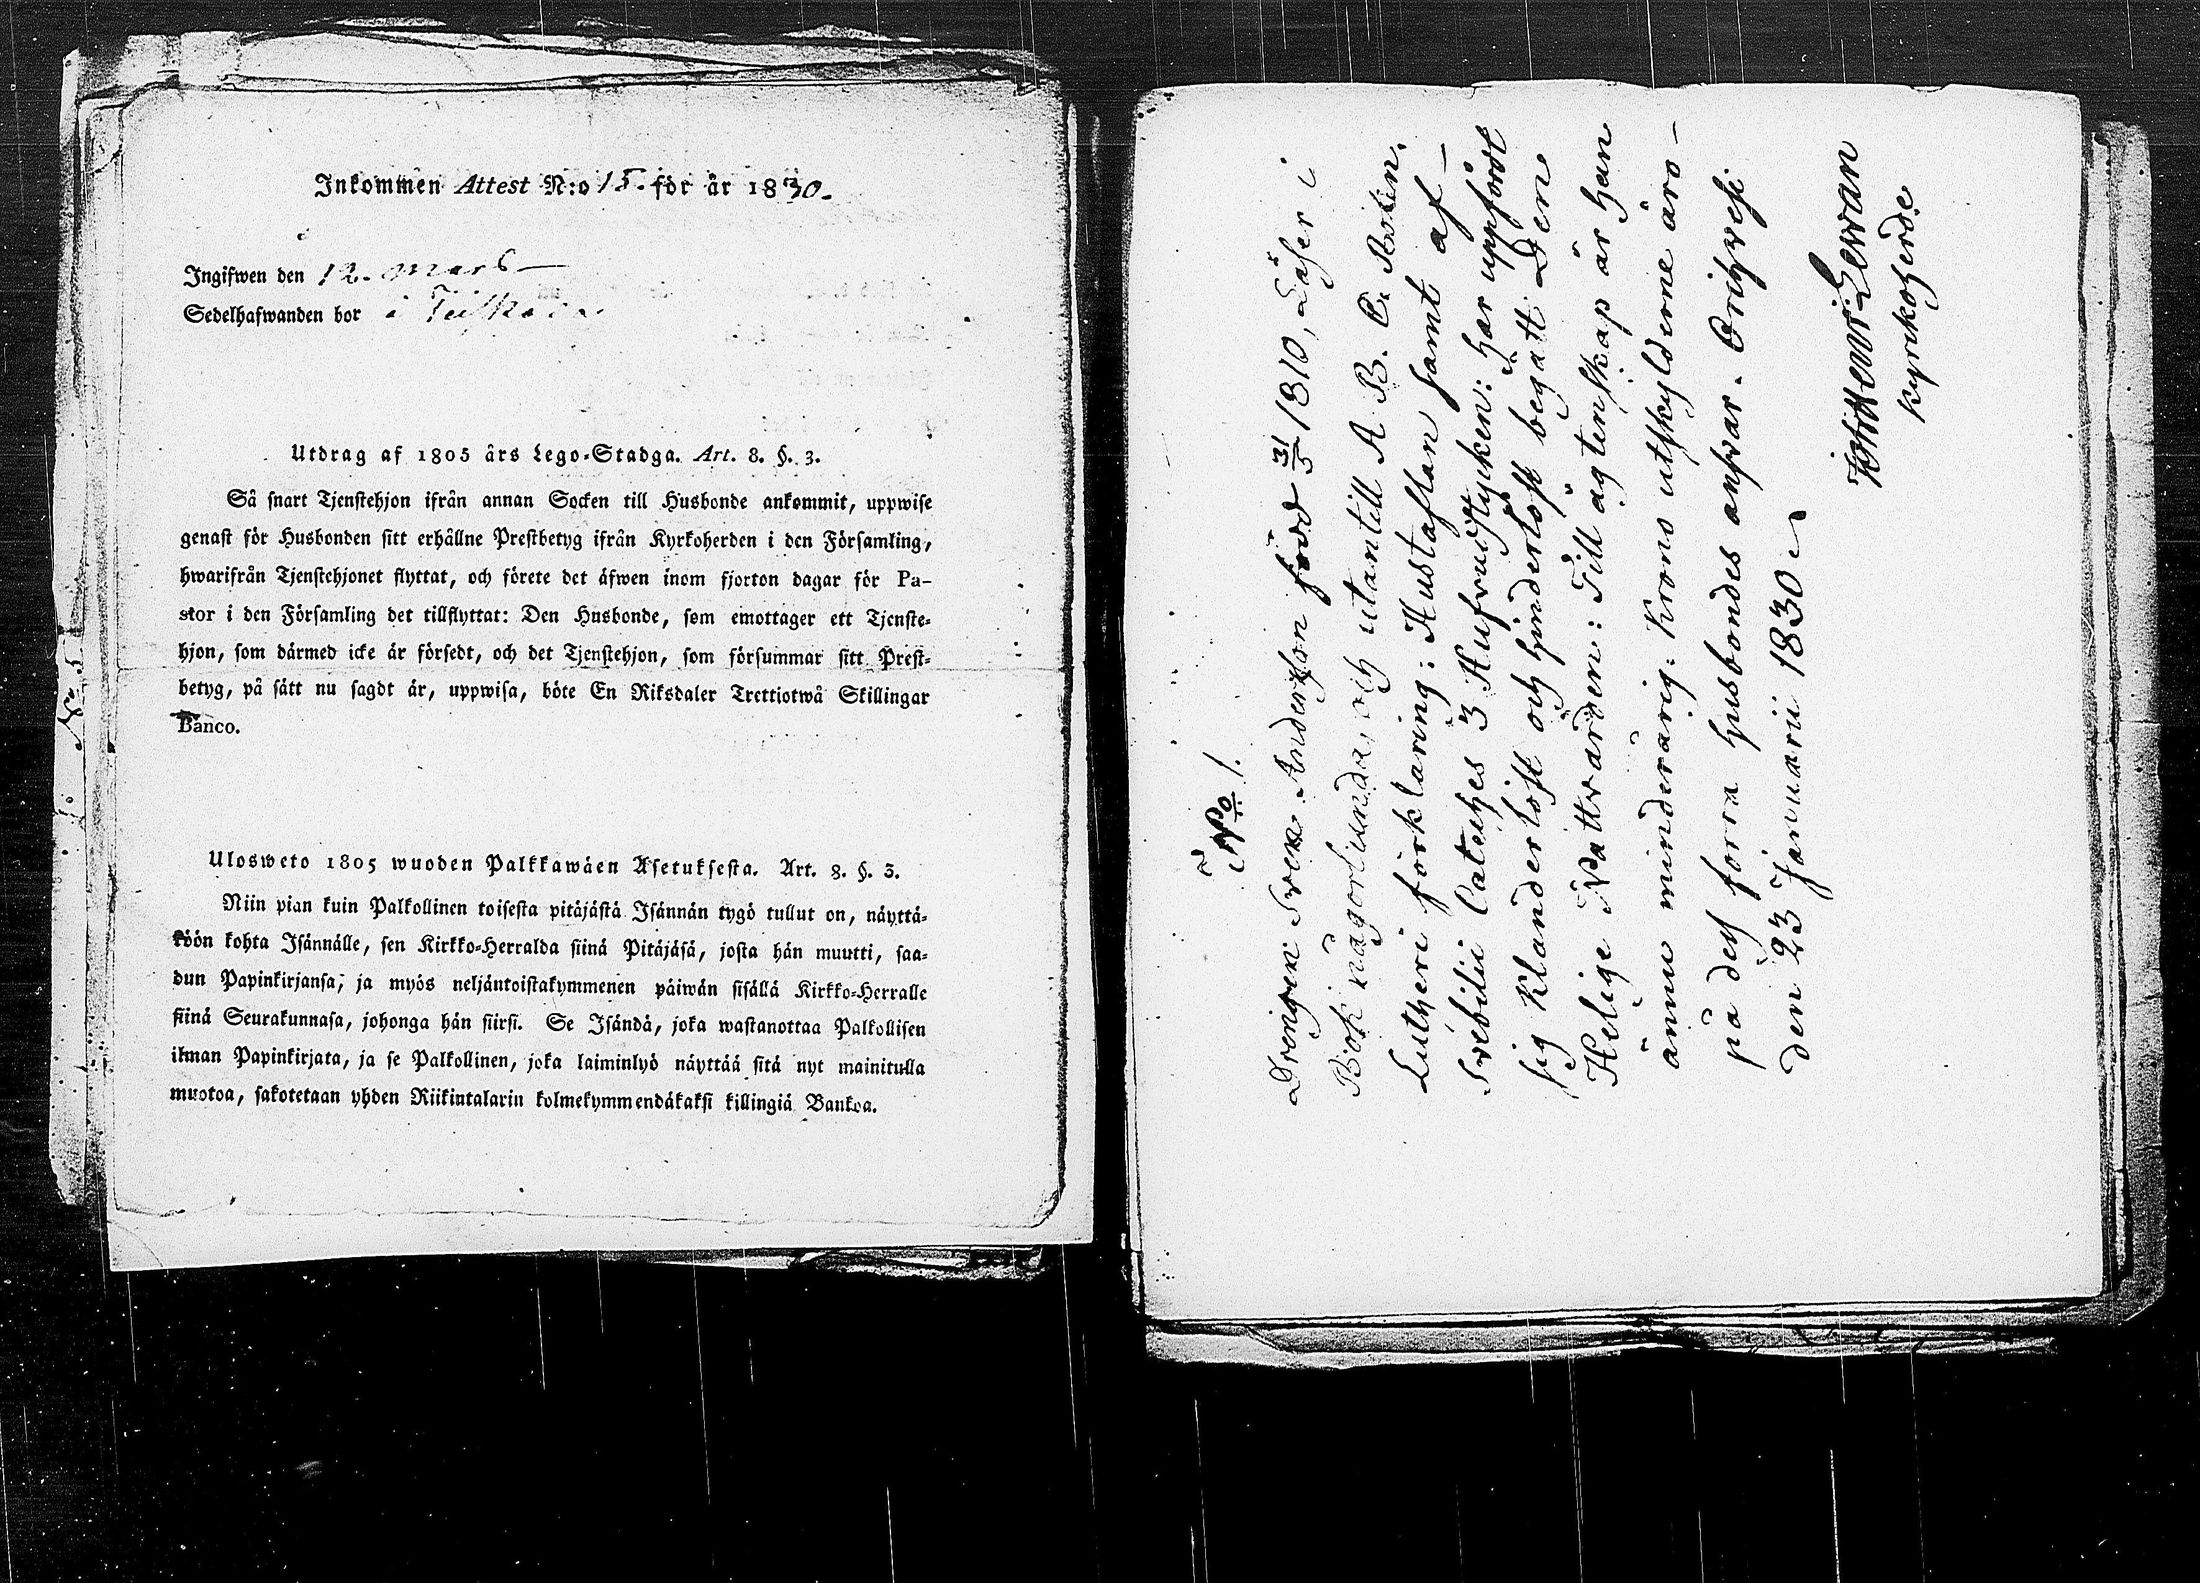 Inkommen Attest N:o 15. för år 1830.
Ingifwen den 12. Mars
Sedelhafwanden bor i
Utdrag af 1805 års Lego-Stadga. Art. 8. §. 3.
Så snart Tjenstehjon ifrån annan Socken till Husbonde ankommit, uppwise
genast för Husbonden sitt erhållne Prestbetyg ifrån Kyrkoherden i den Församling,
hwarifrån Tjenstehjonet flyttat, och förete det äfwen inom fjorton dagar för Pa-
stor i den Församling det tillflyttat: Den Husbonde, som emottager ett Tjenste-
hjon, som därmed icke är försedt, och det Tjenstehjon, som försummar sitt Prest-
betyg, på sätt nu sagdt är, uppwisa, böte En Riksdaler Trettiotwå Skillingar
Banco.
Ulosweto 1805 wuoden Palkkawäen Asetuksesta. Art. 8. §. 3.
Niin pian kuin Palkollinen toisesta pitäjästä Isännän tygö tullut on, näyttä-
köön kohta Isännälle, sen Kirkko-Herralda siinä Pitäjäsä, josta hän muutti, saa-
dun Papinkirjansa, ja myös neljäntoistakymmenen päiwän sisällä Kirkko-Herralle
siinä Seurakunnasa, johonga hän siirsi. Se Isändä, joka wastanottaa Palkollisen
ilman Papinkirjata, ja se Palkollinen, joka laiminlyö näyttää sitä nyt mainitulla
muotoa, sakotetaan yhden Riikintalarin kolmekymmendäkaksi killingiä Bankoa.
No 1.
Drängen Sven Andersson född 31/5 1810, Läser i
Bok någorlunda, och utantill A B. C. Boken,
Lutheri förklaring: Hustaflan samt af
Svebilii Cateches 3 Hufvudstycken: har uppfördt
sig klanderlöst och hinderlöst begått Den
Helige Nattvarden: Till ägtenskap är han
ännu minderårig. Krono utskylderne äro
på dess förra husbondes ansvar. Orihvesi
den 23 Januarii 1830
Kyrkoherde